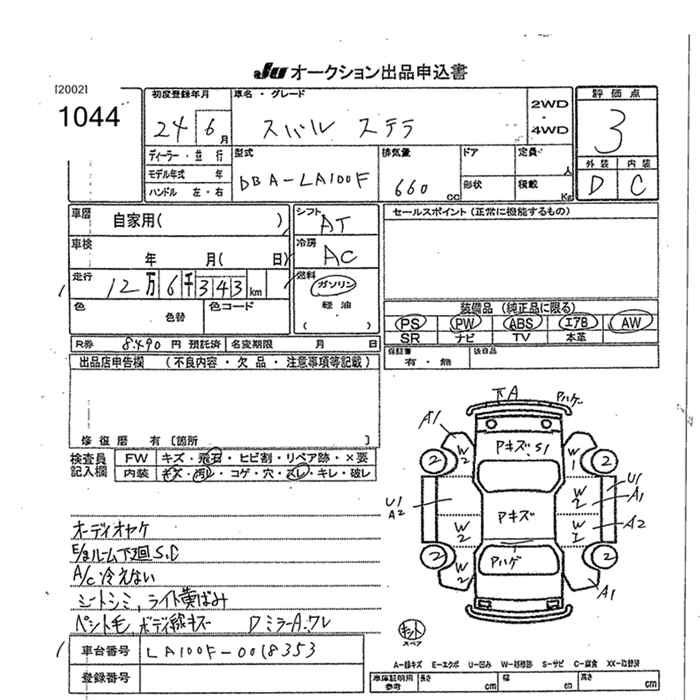 JU オークション出品申込書
[2002]
1044
初度登録年月
24 6月
車名・グレード
スバル ステラ
2WD
・
4WD
評価点
3
外装 内装
D C
ディーラー・並行
モデル年式 年
ハンドル 左・右
型式
DBA-LA100F
排気量
660 cc
ドア
形状
定員 人
積載 Kg
車歴
自家用( )
シフト
AT
車検
年 月( 日)
冷房
AC
走行
12万6千343km
燃料
ガソリン
軽油
( )
色
色替
色コード
セールスポイント (正常に機能するもの)
装備品 (純正品に限る)
PS PW ABS エアB AW
SR ナビ TV 本革
保証書
有・無
後日品
R券 8,490円 預託済 名変期限 月 日
出品店申告欄 (不良内容・欠品・注意事項等記載)
修復歴 有 [箇所 ]
検査員
記入欄
FW キズ・飛石・ヒビ割・リペア跡・×要
内装 キズ・汚レ・コゲ・穴・スレ・キレ・破レ
オーディオヤケ
E/gルーム下廻S.C
A/C冷えない
シートシミ,ライト黄ばみ
ペット毛,ボディ線キズ Dミラー A.ワレ
車台番号 LA100F-0018353
登録番号
下A
Pハゲ
A1
Pキズ・S1
W2
W1
2
2
U1
A2
Pキズ
W2
U1
A1
W2
W1
A2
Pハゲ
W2
2
2
A1
キット
スペア
A-線キズ E-エクボ U-凹み W-補修跡 S-サビ C-腐食 XX-取替済
車庫証明用
参考
長さ cm
幅 cm
高さ cm